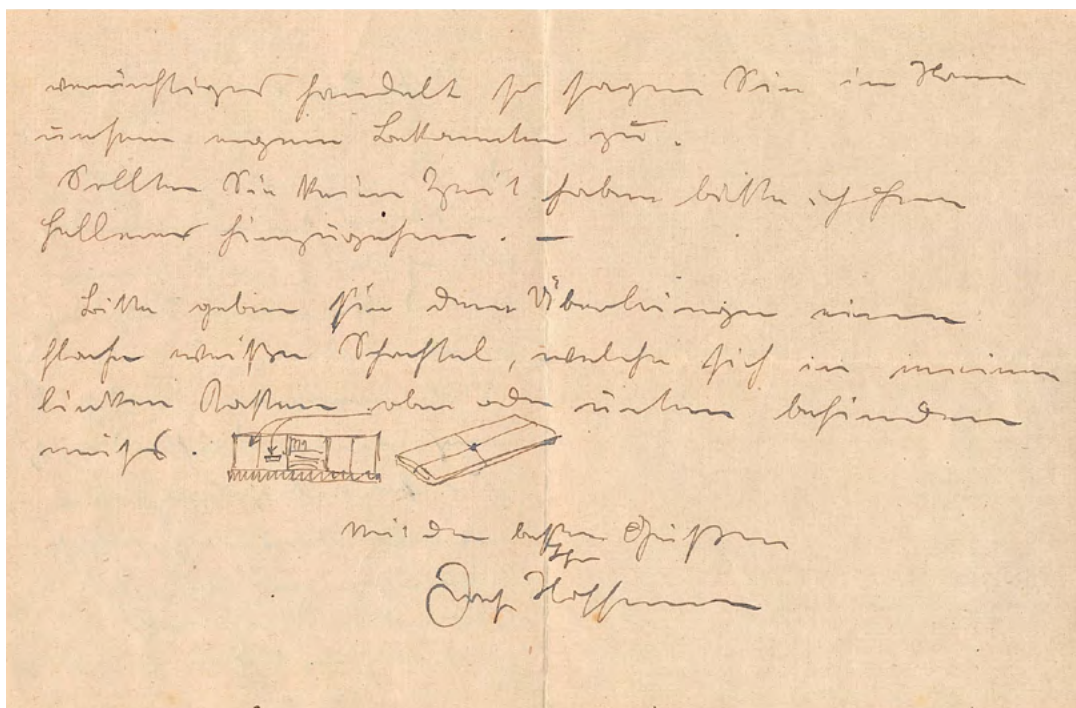 vernünftiges handelt so sagen Sie in
unsern Bekannten zu.
Sollten Sie keine Zeit haben bitte ich Herrn
hinzugehen. —
Bitte geben Sie dem Überbringer einen
flache weiße Schachtel, welche sich in meinem
linken Kasten oben oder unten befinden
muß.
Mit den besten Grüßen
Ihr
Josef Hoffmann